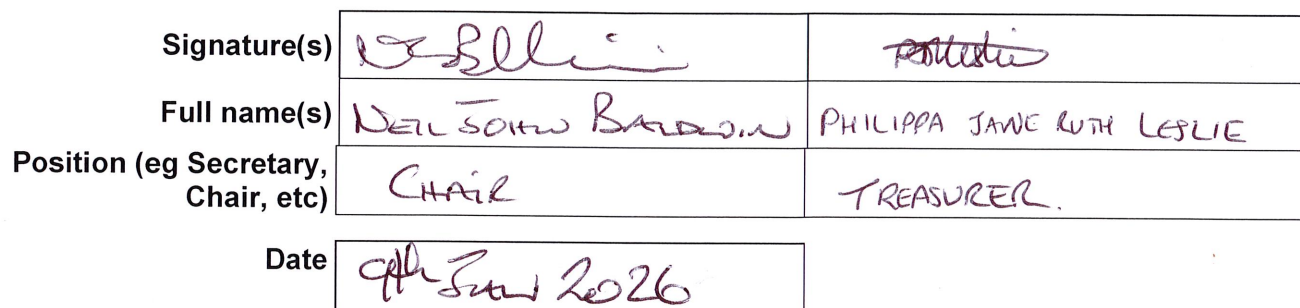 Signature(s)
Full name(s) NEIL JOHN BALDWIN PHILIPPA JANE RUTH LESLIE
Position (eg Secretary,
Chair, etc) CHAIR TREASURER.
Date 9th JAN 2026